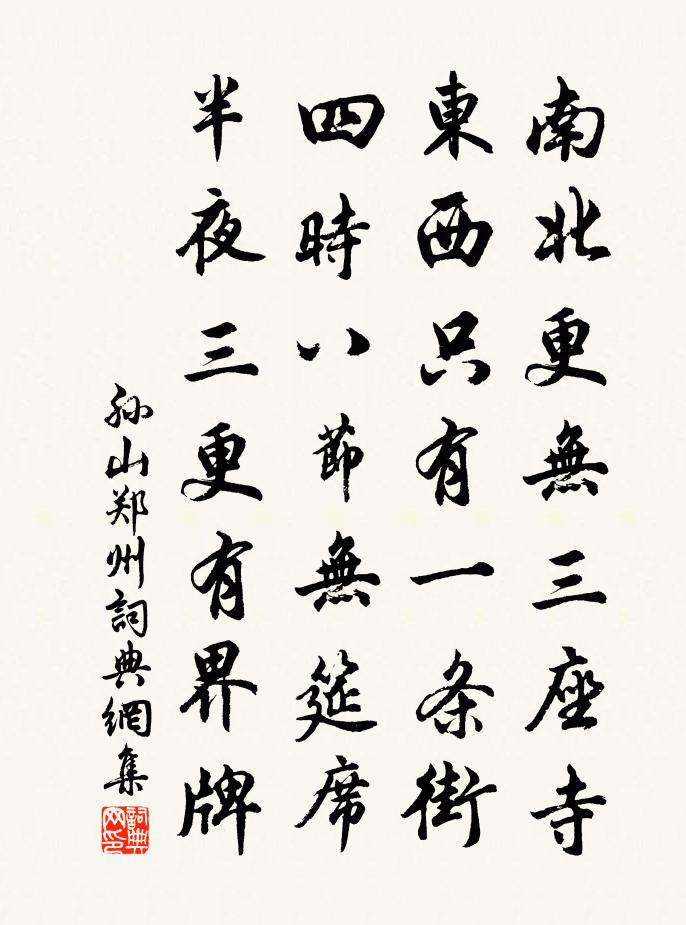 南北更無三座寺
東西只有一条街
四時八節無筵席
半夜三更有界牌
孙山郑州詞典網集
詞典网印